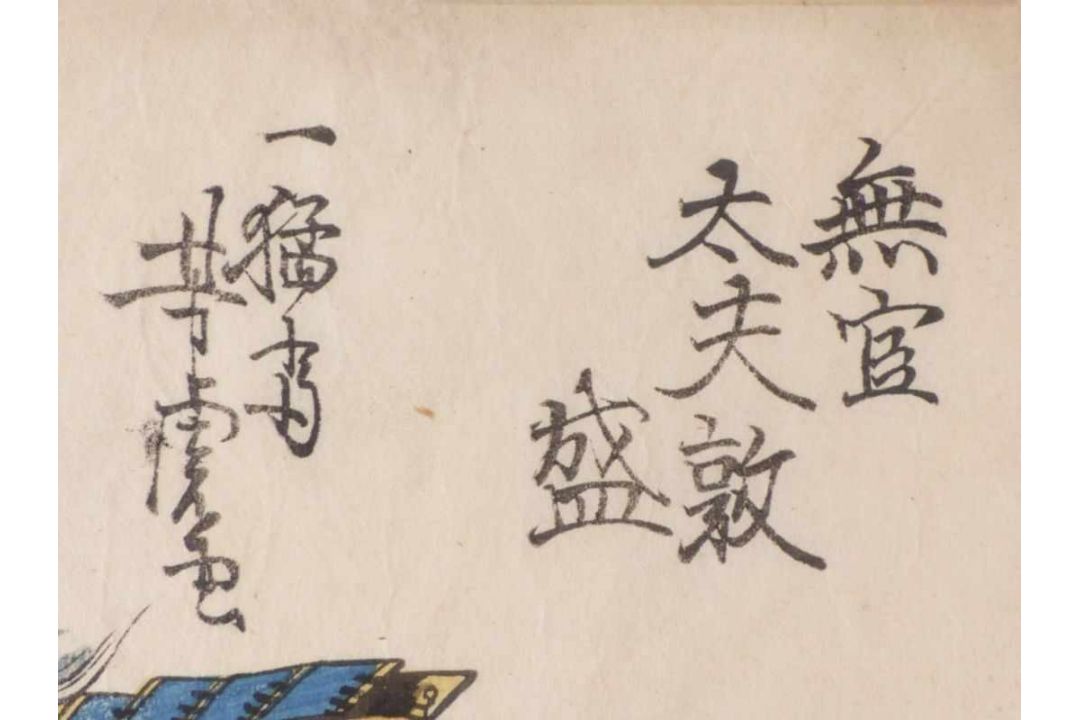 無官
太夫敦
盛
一猛斉
芳虎画